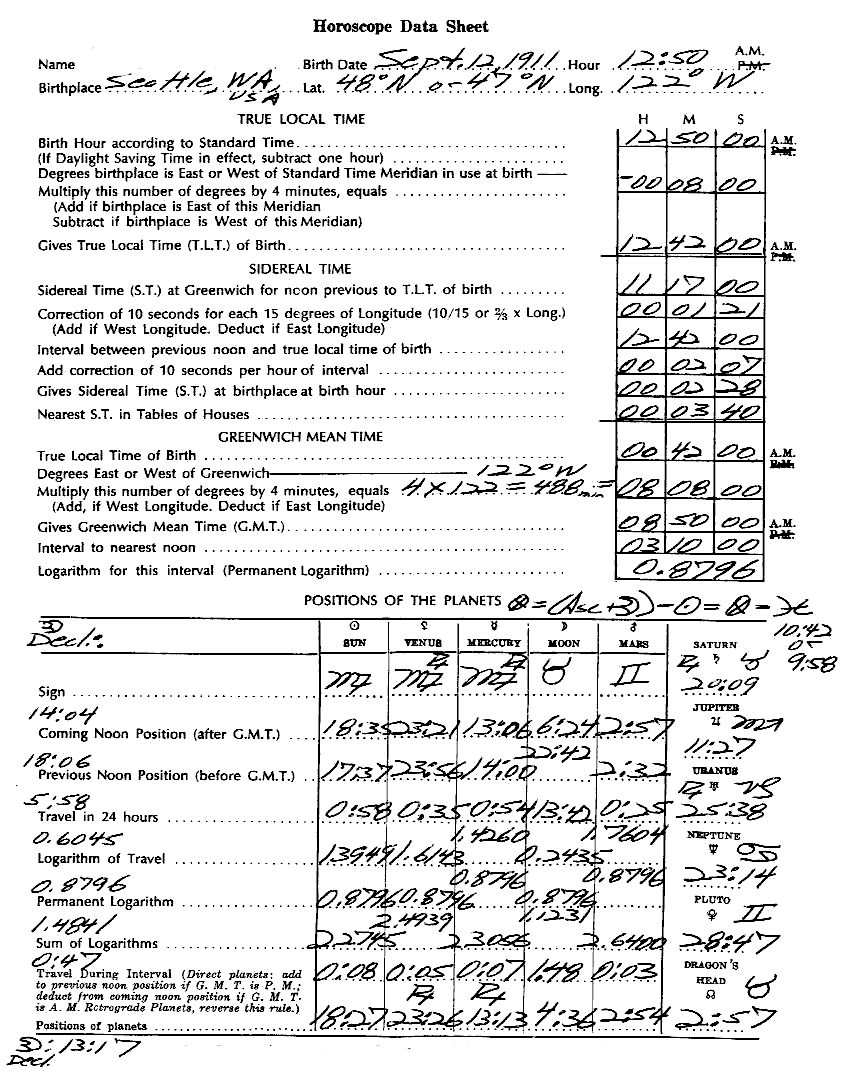 Horoscope Data Sheet
Name Birth Date Sept. 12, 1911 Hour 12:50 A.M. P.M.
Birthplace Seattle, WA, USA Lat. 48°N or 47°N Long. 122° W
TRUE LOCAL TIME H M S
Birth Hour according to Standard Time 12 50 00 A.M. P.M.
(If Daylight Saving Time in effect, subtract one hour)
Degrees birthplace is East or West of Standard Time Meridian in use at birth
Multiply this number of degrees by 4 minutes, equals -00 08 00
(Add if birthplace is East of this Meridian
Subtract if birthplace is West of this Meridian)
Gives True Local Time (T.L.T.) of Birth 12 42 00 A.M. P.M.
SIDEREAL TIME
Sidereal Time (S.T.) at Greenwich for noon previous to T.L.T. of birth 11 17 00
Correction of 10 seconds for each 15 degrees of Longitude (10/15 or ⅔ x Long.) 00 01 21
(Add if West Longitude. Deduct if East Longitude)
Interval between previous noon and true local time of birth 12 42 00
Add correction of 10 seconds per hour of interval 00 02 07
Gives Sidereal Time (S.T.) at birthplace at birth hour 00 02 28
Nearest S.T. in Tables of Houses 00 03 40
GREENWICH MEAN TIME
True Local Time of Birth 00 42 00 A.M. P.M.
Degrees East or West of Greenwich 122° W
Multiply this number of degrees by 4 minutes, equals 4 x 122 = 488 min = 08 08 00
(Add, if West Longitude. Deduct if East Longitude)
Gives Greenwich Mean Time (G.M.T.) 08 50 00 A.M. P.M.
Interval to nearest noon 03 10 00
Logarithm for this interval (Permanent Logarithm) 0.8796
POSITIONS OF THE PLANETS ⊗ = (Asc + ☽) - ☉ = ⊗ = ♓
10:42 or 9:58
☽ Decl.: ☉ SUN ♀ VENUS ☿ MERCURY ☽ MOON ♂ MARS SATURN
Sign ♍ ♍ ℞ ♍ ℞ ♉ ♊ ℞ ♄ ♉ 20:09
14:04 JUPITER
Coming Noon Position (after G.M.T.) 18:35 23:21 13:06 6:24 2:57 ♃ ♏ 11:27
18:06 22:42 URANUS
Previous Noon Position (before G.M.T.) 17:37 23:56 14:00 2:32 ℞ ♅ ♑
5:58
Travel in 24 hours 0:58 0:35 0:54 13:42 0:25 25:38
0.6045 1.4260 1.7604 NEPTUNE
Logarithm of Travel 13949 1.6143 0.2435 ♆ ♋
0.8796 0.8796 0.8796 23:14
Permanent Logarithm 0.8796 0.8796 0.8796 PLUTO
1.4841 2.4939 1.1231 ♀ ♊
Sum of Logarithms 22745 23056 2.6400 28:47
0:47
Travel During Interval (Direct planets: add 0:08 0:05 0:07 1:48 0:03 DRAGON'S
to previous noon position if G. M. T. is P. M.; HEAD
deduct from coming noon position if G. M. T. ℞ ℞ ☊ ♉
is A. M. Retrograde Planets, reverse this rule.)
Positions of planets 18:27 23:26 13:13 4:36 2:54 2:57
☽: 13:17
Decl.